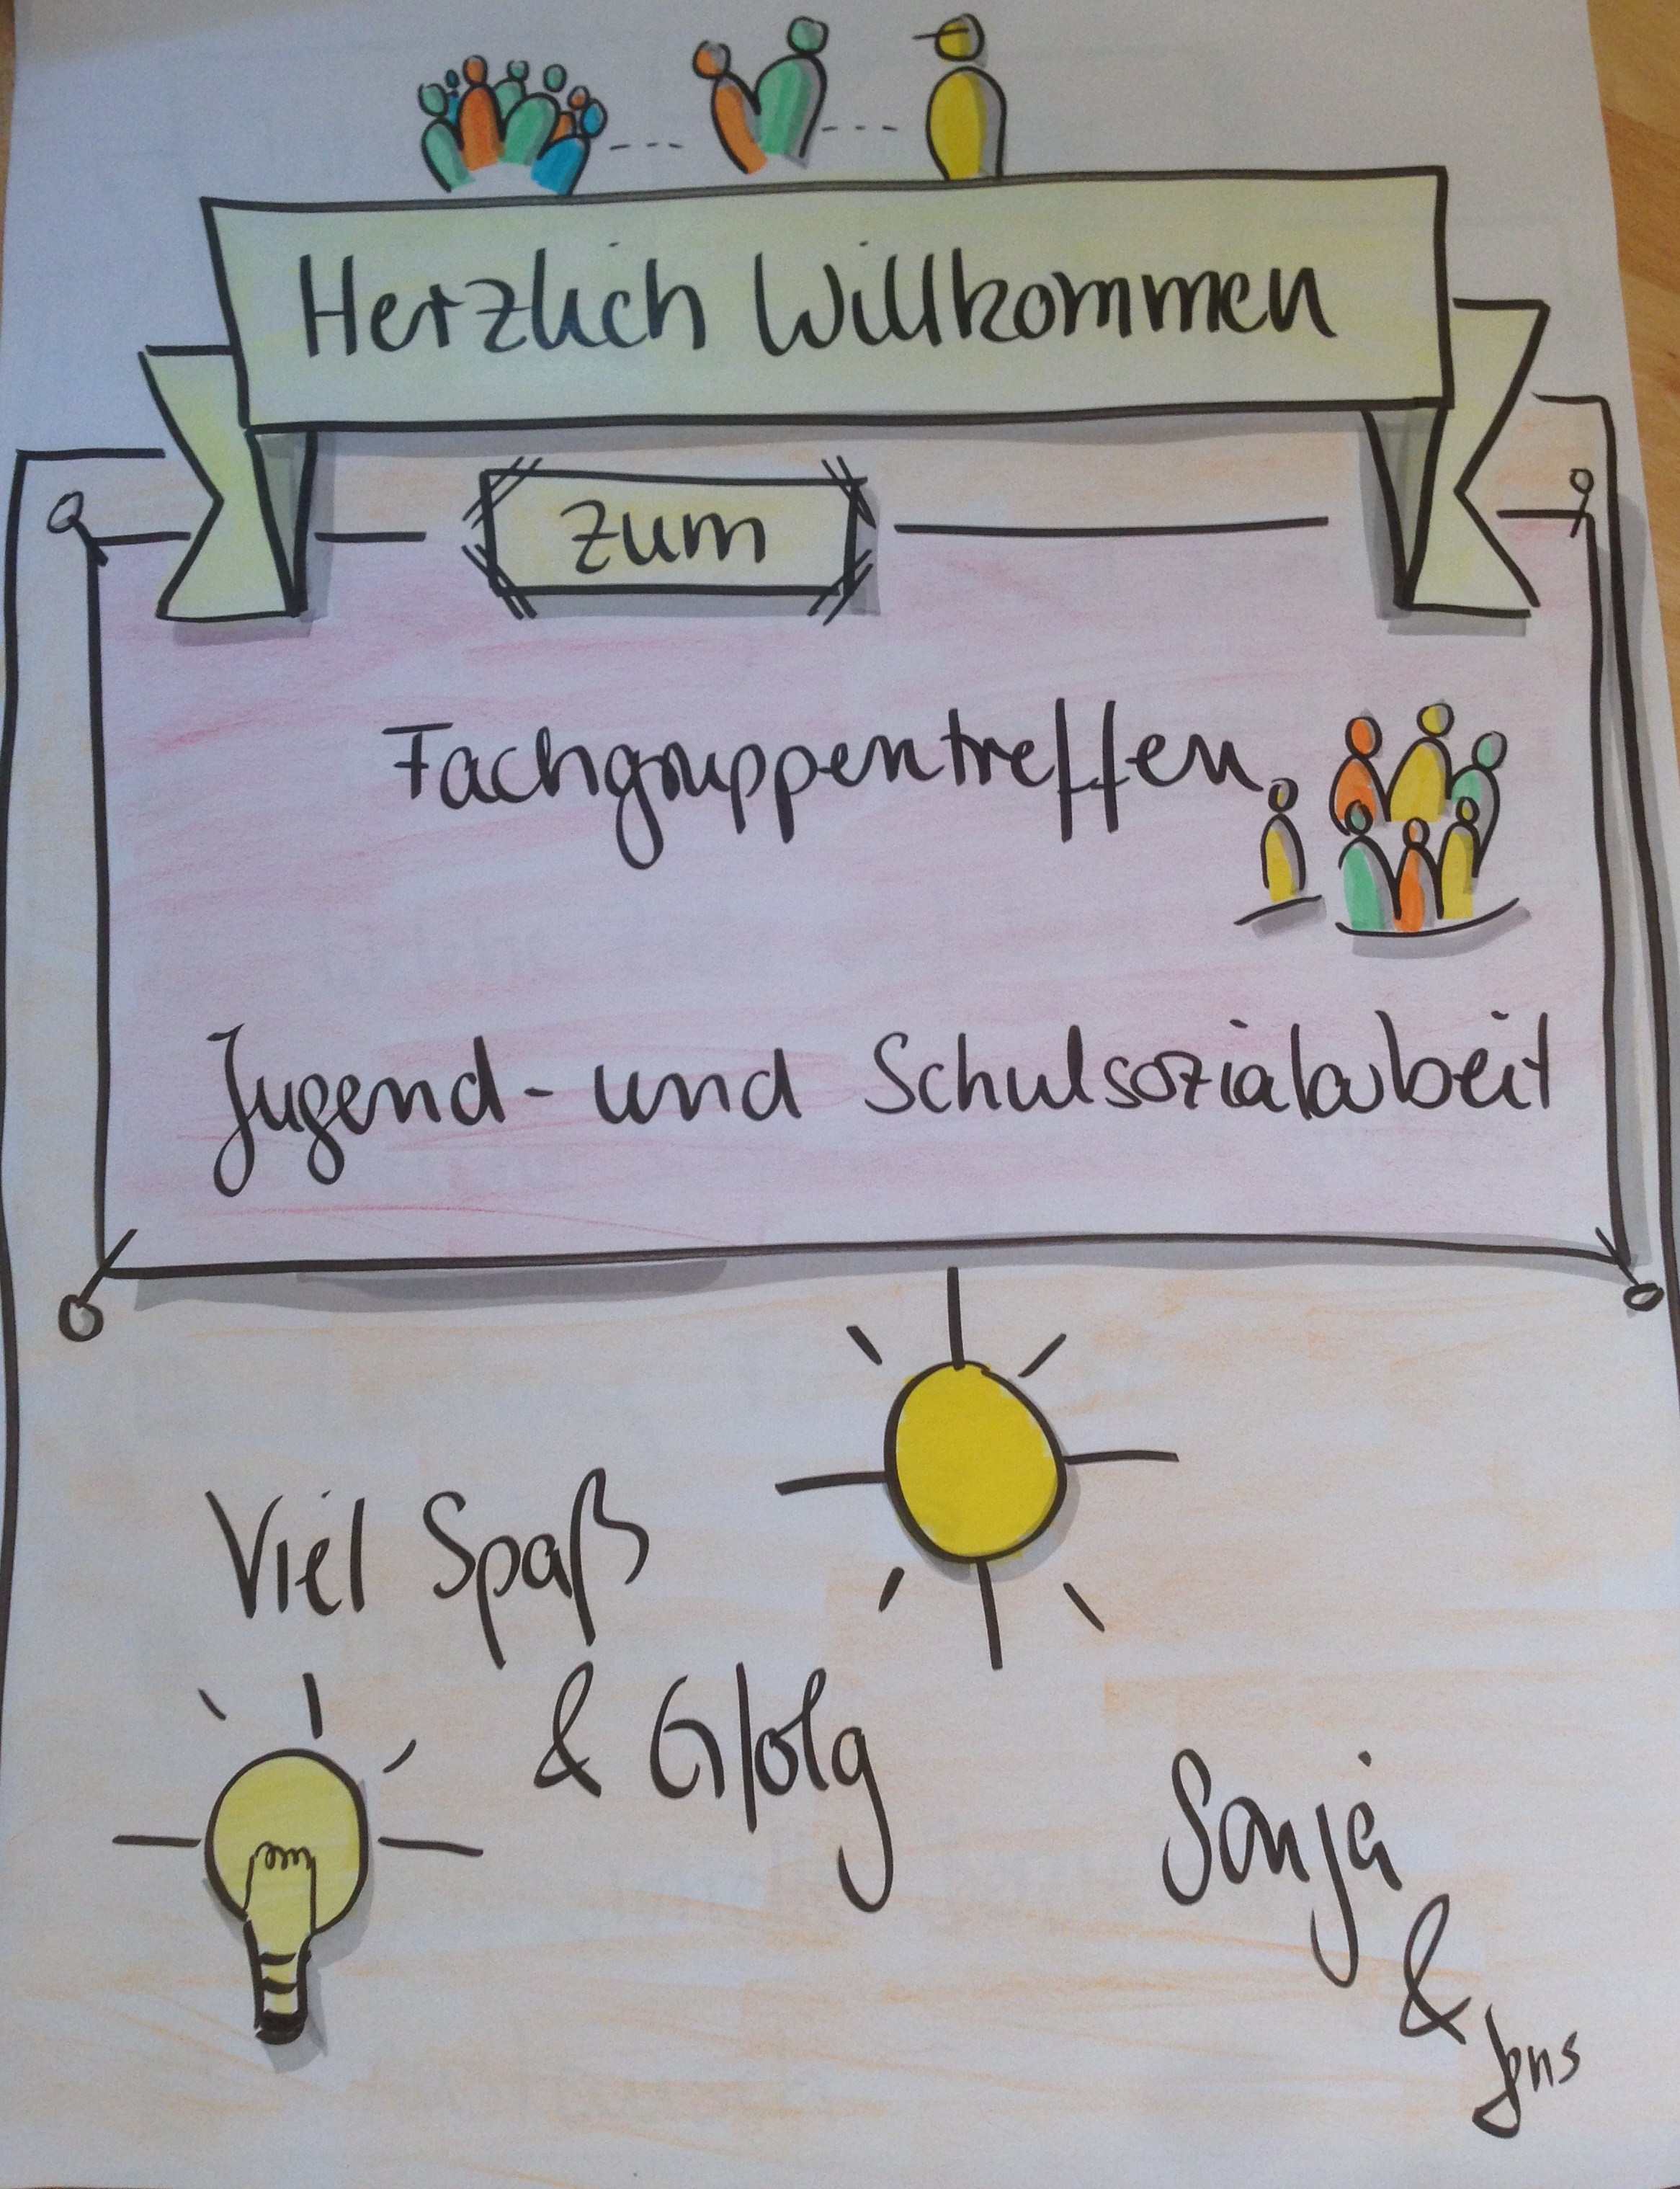 Herzlich Willkommen
zum
Fachgruppentreffen
Jugend- und Schulsozialarbeit
Viel Spaß
& Erfolg
Sonja
&
Jens